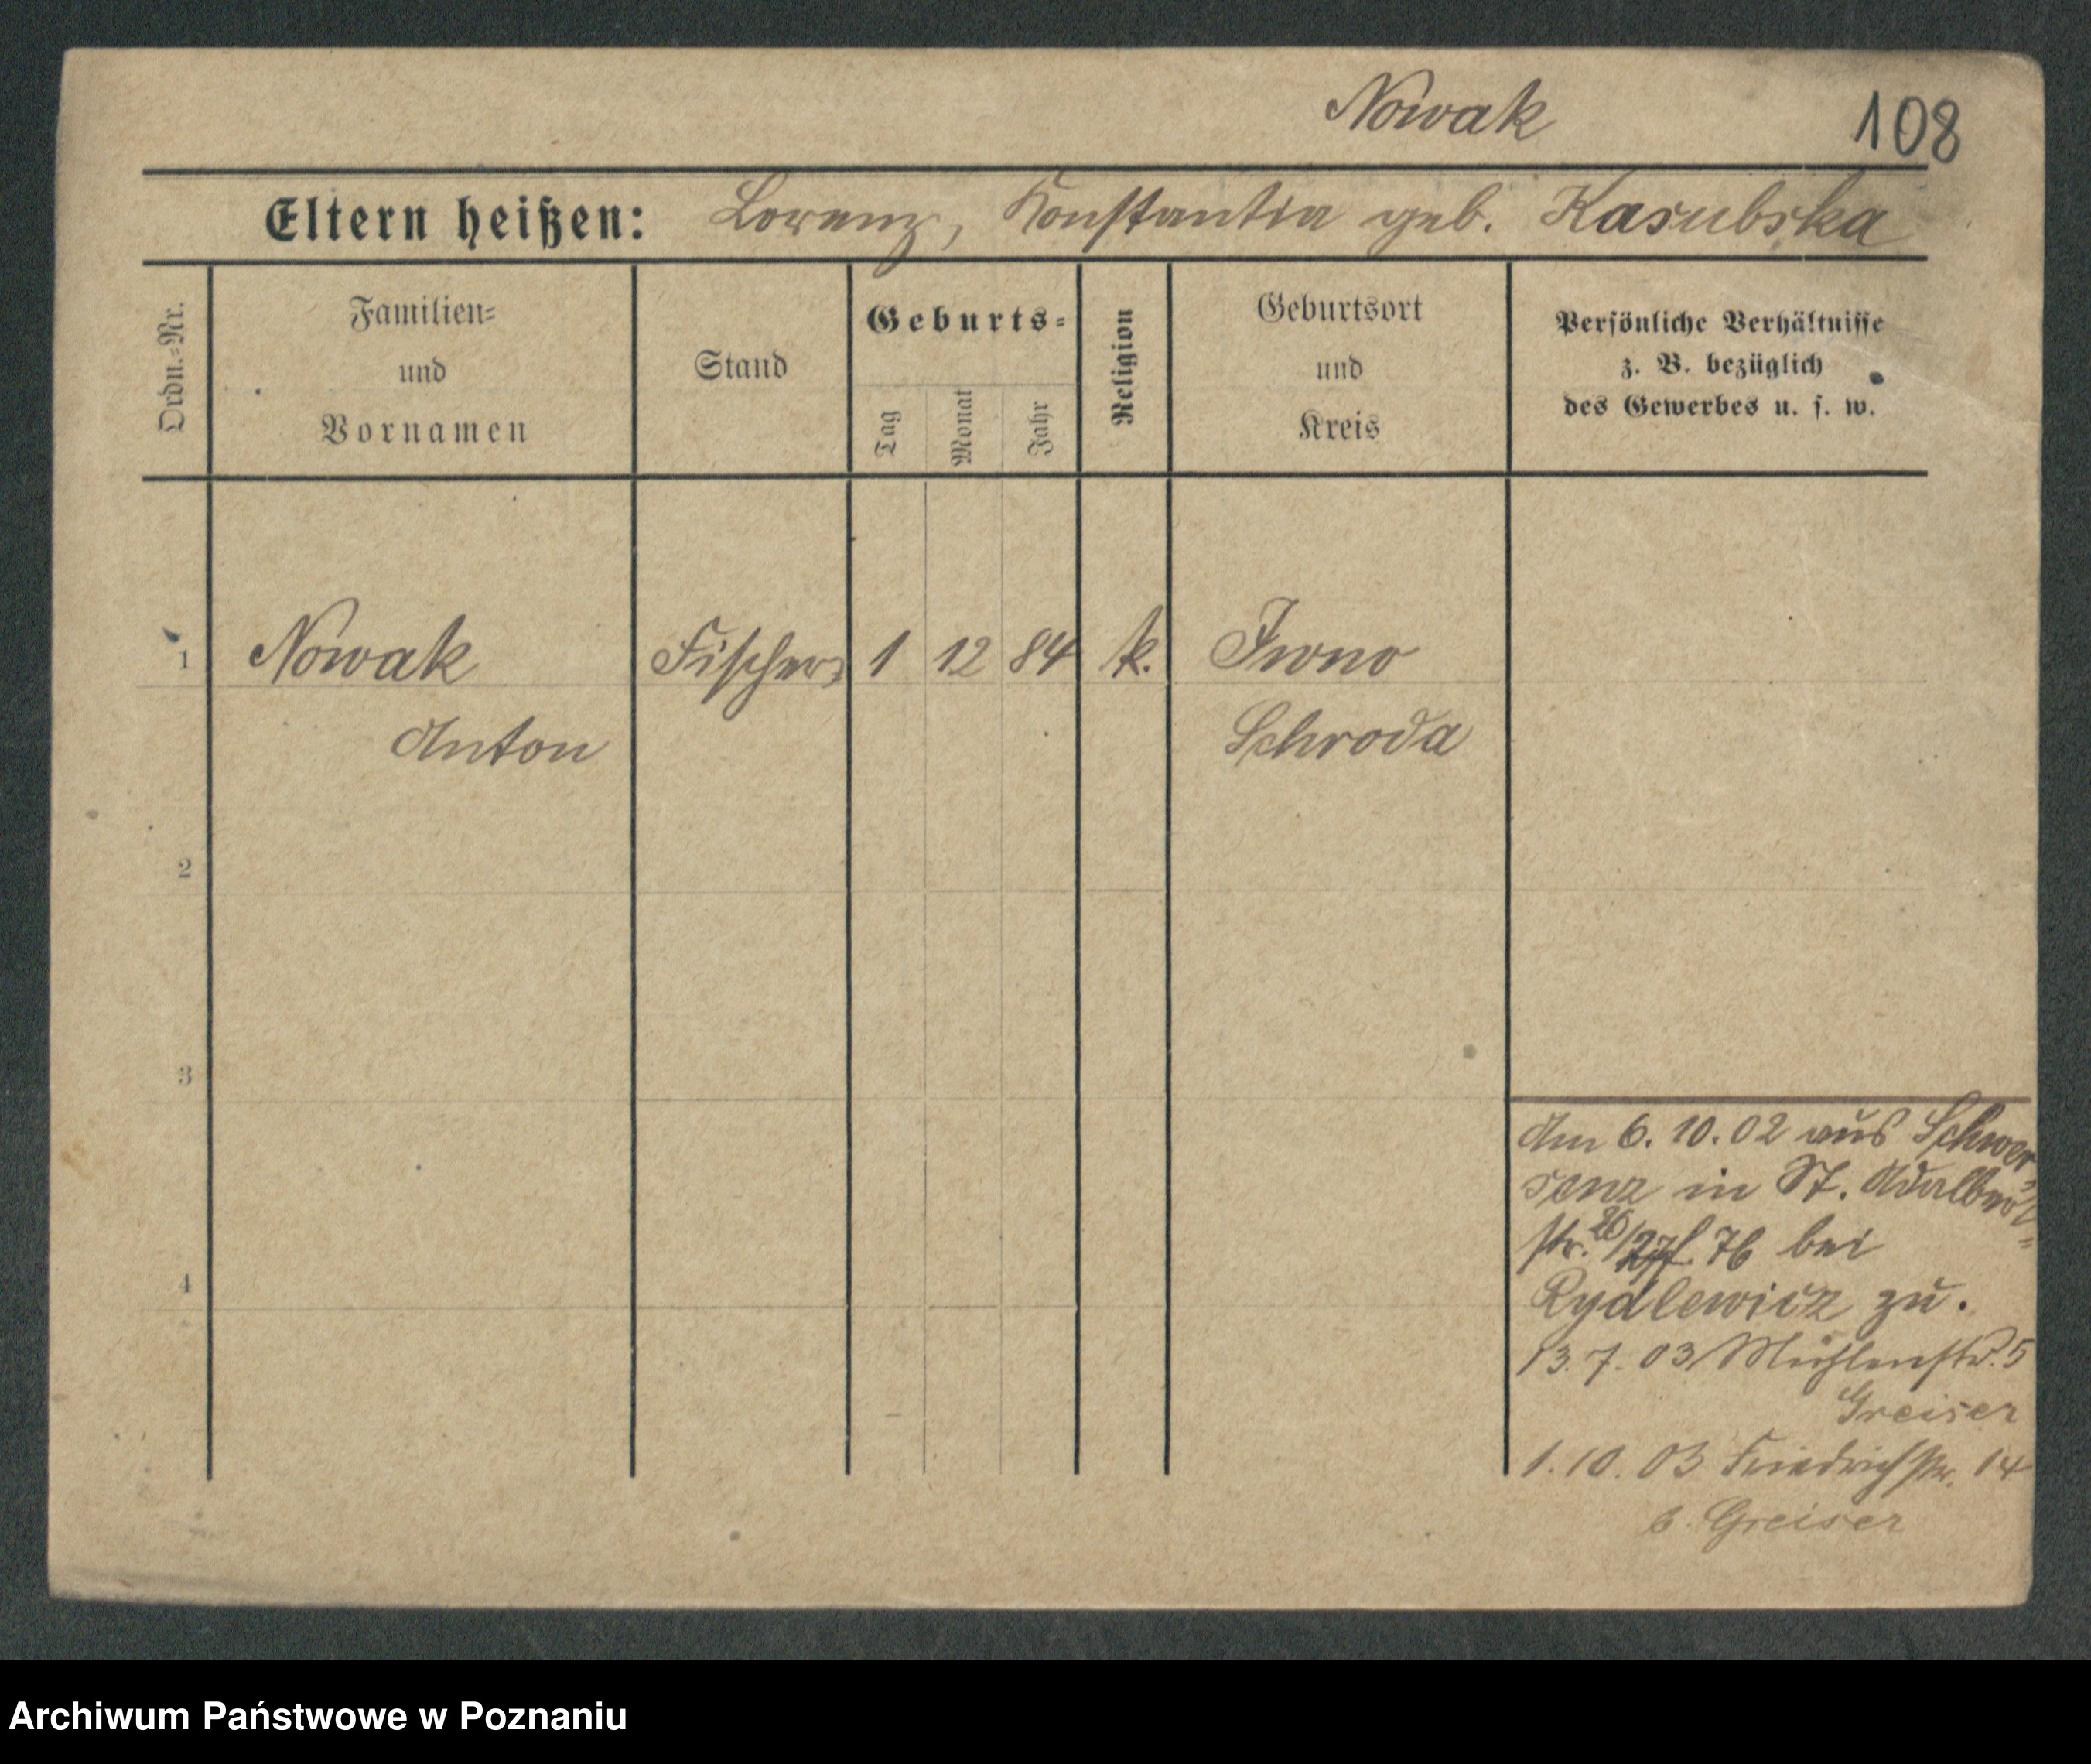 Nowak
108
Eltern heißen: Lorenz, Konstantia geb. Kasubska
Ordn.=Nr.
Familien=
und
Vornamen
Stand
Geburts=
Tag
Monat
Jahr
Religion
Geburtsort
und
Kreis
Persönliche Verhältnisse
z. B. bezüglich
des Gewerbes u. s. w.
1 Nowak Fischer 1 12 84 k. Iwno
Anton Schroda
2
3
4
Am 6. 10. 02 aus Schwer
senz in St. Adalbert=
str. 26/27 76 bei
Rydlewicz zu.
13. 7. 03 Mühlenstr. 5
Greiser
1. 10. 03 Friedrichstr. 14
b. Greiser
Archiwum Państwowe w Poznaniu